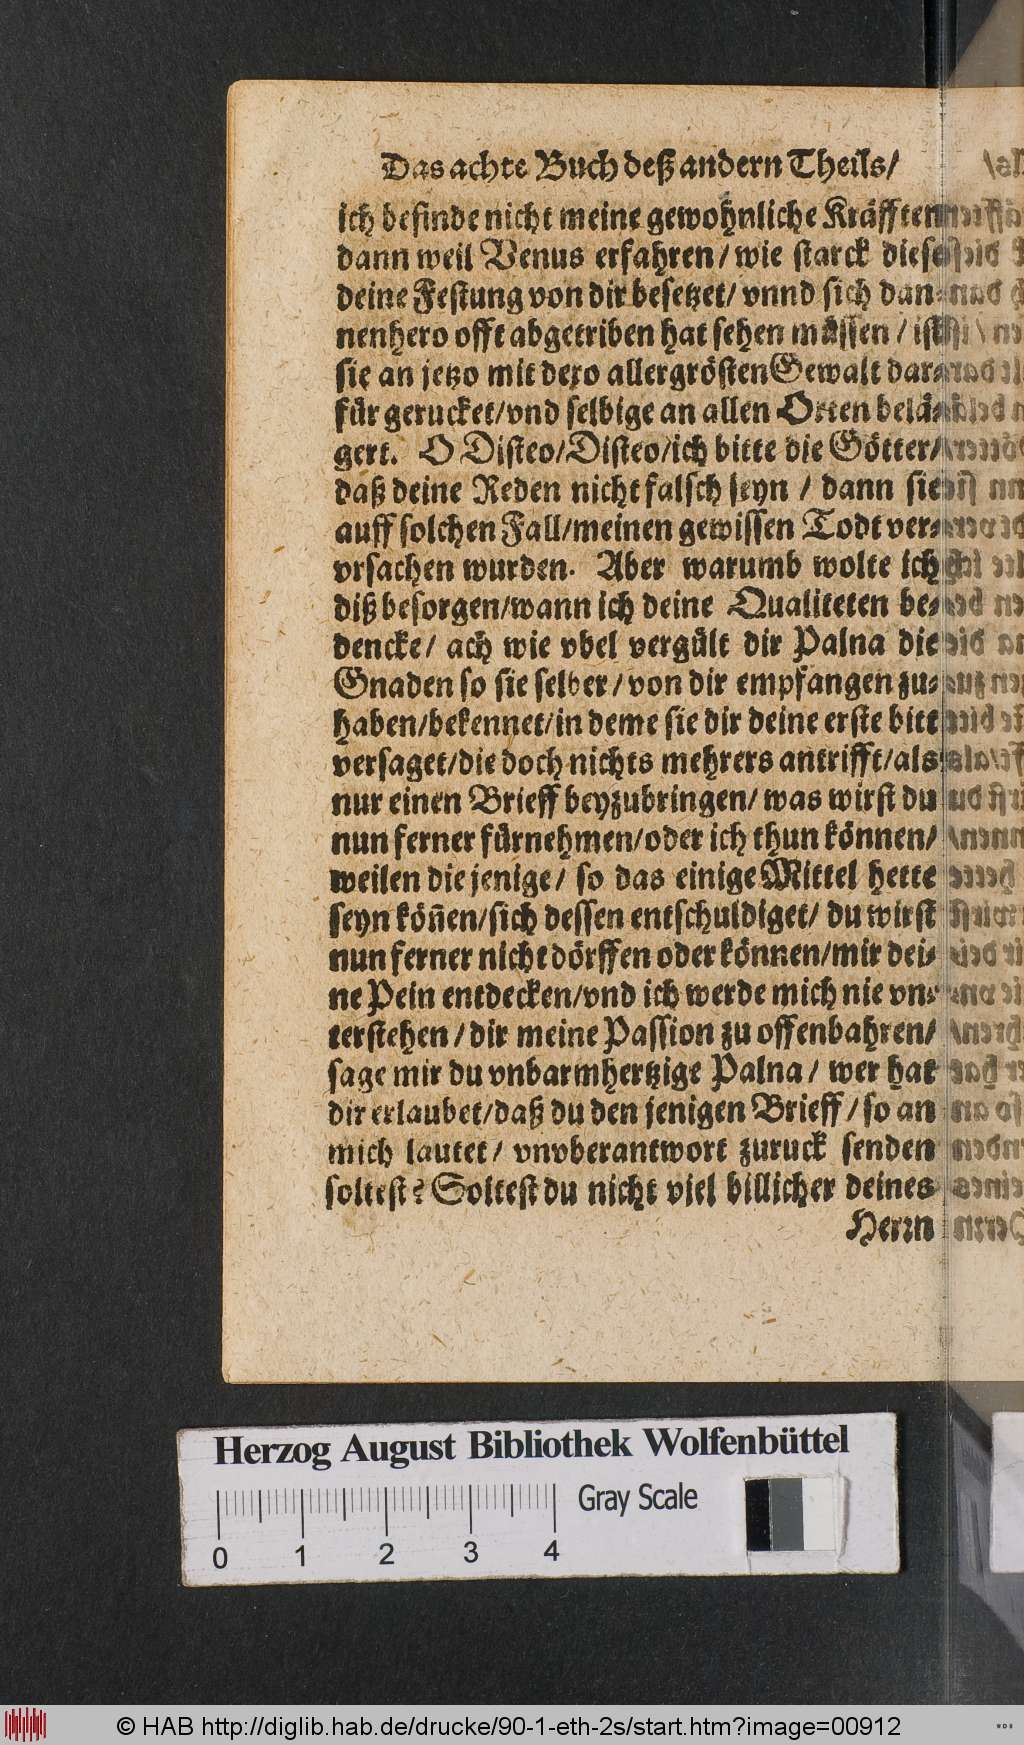 Das achte Buch deß andern Theils/
ich befinde nicht meine gewohnliche Kräfften
dann weil Venus erfahren/ wie starck diese
deine Festung von dir besetzet/ vnnd sich dan-
nenhero offt abgetriben hat sehen müssen / ist
sie an jetzo mit dero allergrösten Gewalt dar-
für gerucket/vnd selbige an allen Orten belä-
gert. O Disteo/Disteo/ich bitte die Götter/
daß deine Reden nicht falsch seyn / dann sie
auff solchen Fall/meinen gewissen Todt ver-
vrsachen wurden. Aber warumb wolte ich
diß besorgen/wann ich deine Qualiteten be-
dencke/ ach wie vbel vergült dir Palna die
Gnaden so sie selber/von dir empfangen zu-
haben/bekennet/in deme sie dir deine erste bitt
versaget/die doch nichts mehrers antrifft/als
nur einen Brieff beyzubringen/ was wirst du
nun ferner fürnehmen/oder ich thun können/
weilen die jenige/ so das einige Mittel hette
seyn köñen/sich dessen entschuldiget/ du wirst
nun ferner nicht dörffen oder können/mir dei-
ne Pein entdecken/vnd ich werde mich nie vn-
terstehen/dir meine Passion zu offenbahren/
sage mir du vnbarmhertzige Palna/ wer hat
dir erlaubet/daß du den jenigen Brieff/so an
mich lautet/ vnvberantwort zuruck senden
soltest? Soltest du nicht viel billicher deines
Herrn
Herzog August Bibliothek Wolfenbüttel
Gray Scale
0 1 2 3 4
© HAB http://diglib.hab.de/drucke/90-1-eth-2s/start.htm?image=00912